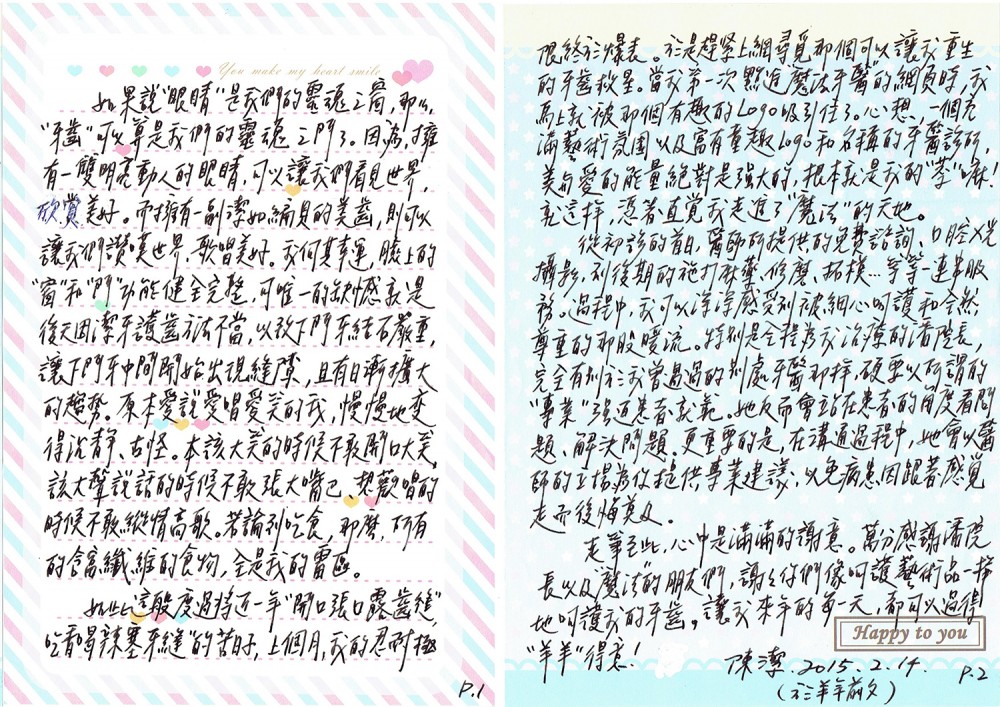 You make my heart smile
如果說"眼睛"是我們的靈魂之窗，那么，
"牙齒"可以算是我們的靈魂之門了。因為，擁
有一雙明亮動人的眼睛，可以讓我們看見世界，
欣賞美好。而擁有一副潔如編貝的美齒，則可以
讓我們讚嘆世界、歌唱美好。我何其幸運，臉上的
"窗"和"門"功能健全完整，可唯一的缺憾就是
後天因潔牙護齒方法不當，以致下門牙結石嚴重，
讓下門牙中間開始出現縫隙，且有日漸擴大
的趨勢。原本愛說愛唱愛笑的我，慢慢地變
得沈靜、古怪。本該大笑的時候不敢開口大笑，
該大聲說話的時候不敢張大嘴巴、想歡唱的
時候不敢縱情高歌。若論到吃食，那麼，所有
的含富纖維的食物，全是我的雷區。
如此這般度過將近一年"開口張口露齒縫，
吃香喝辣塞牙縫"的苦日子，上個月，我的忍耐極
P.1
限終於爆表。於是趕緊上網尋覓那個可以讓我重生
的牙齒救星。當我第一次點進"魔法牙醫"的網頁時，我
馬上就被那個有趣的Logo吸引住了。心想，一個充
滿藝術氛圍以及富有童趣Logo和名稱的牙醫診所，
美與愛的能量絕對是強大的，根本就是我的"菜"嘛！
就這樣，憑著直覺我走進了"魔法"的天地。
從初診的首日，醫師所提供的免費諮詢、口腔X光
攝影，到後期的施打麻藥、修磨、拓模…等等一連串服
務。過程中，我可以深深感受到被細心呵護和全然
尊重的那股暖流。特別是全程為我治療的潘院長，
完全有別於我曾遇過的別處牙醫那樣，硬要以所謂的
"專業"強迫患者就範。她反而會站在患者的角度看問
題、解決問題。更重要的是，在溝通過程中，她會以醫
師的立場為你提供專業建議，以免病患因跟著感覺
走而後悔莫及。
走筆至此，心中是滿滿的謝意。萬分感謝潘院
長以及"魔法"的朋友們，謝謝你們像呵護藝術品一樣
地呵護我的牙齒。讓我來年的每一天，都可以過得
"羊羊"得意！
Happy to you
陳潔. 2015.2.14.
(於羊年前夕)
P.2